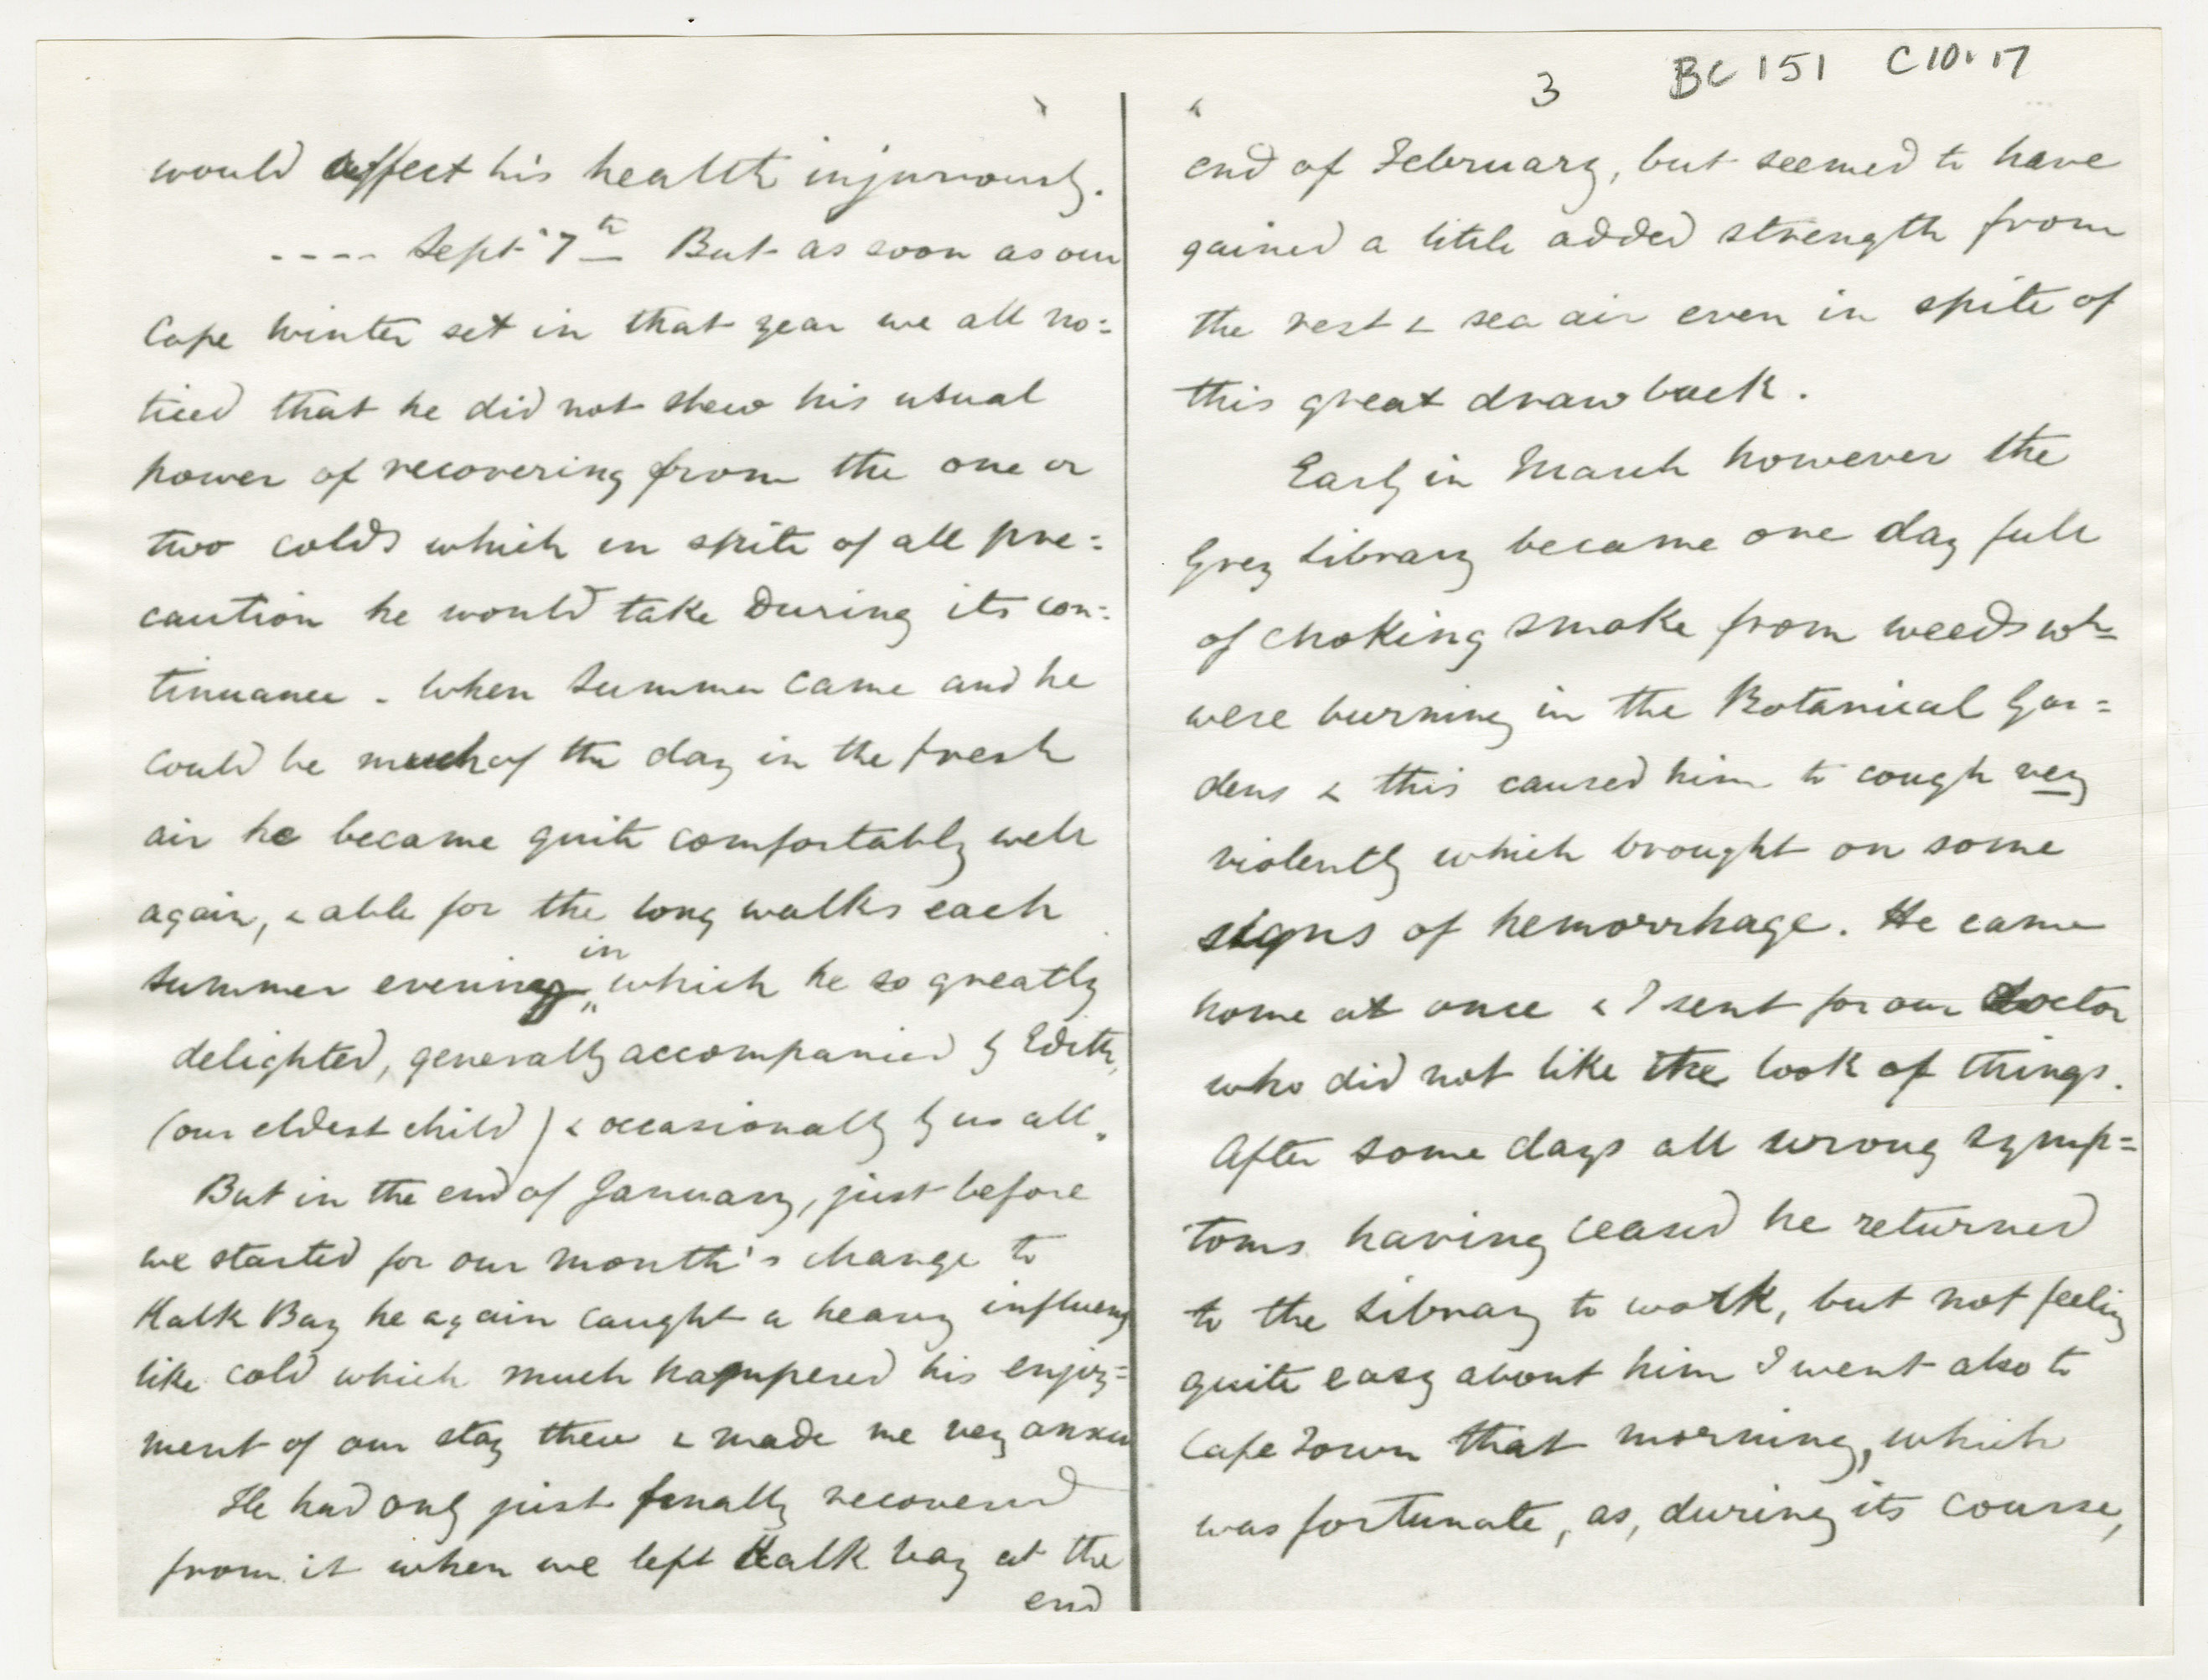 3 BC 151 C10.17
would affect his health injuriously.
---- Sept 7th But as soon as our
Cape winter set in that year we all no=
ticed that he did not shew his usual
power of recovering from the one or
two colds which in spite of all pre=
caution he would take during its con=
tinuance. When summer came and he
could be much of the day in the fresh
air he became quite comfortably well
again, & able for the long walks each
in
summer evening which he so greatly
delighted, generally accompanied by Edith,
(our eldest child) & occasionally by us all.
But in the end of January, just before
we started for our month's change to
Kalk Bay he again caught a heavy influenz
like cold which much hampered his enjoy=
ment of our stay there & made me very anxiu
He had only just finally recovered
from it when we left Kalk bay at the
end
end of February, but seemed to have
gained a little added strength from
the rest & sea air even in spite of
this great drawback.
Early in March however the
Grey Library became one day full
of choking smoke from weeds wh=
were burning in the Botanical Gar=
dens & this caused him to cough very
violently which brought on some
signs of hemorrhage. He came
home at once & I sent for our doctor
who did not like the look of things.
After some days all wrong symp=
toms having ceased he returned
to the Library to work, but not feeling
quite easy about him I went also to
Cape Town that morning, which
was fortunate, as, during its course,